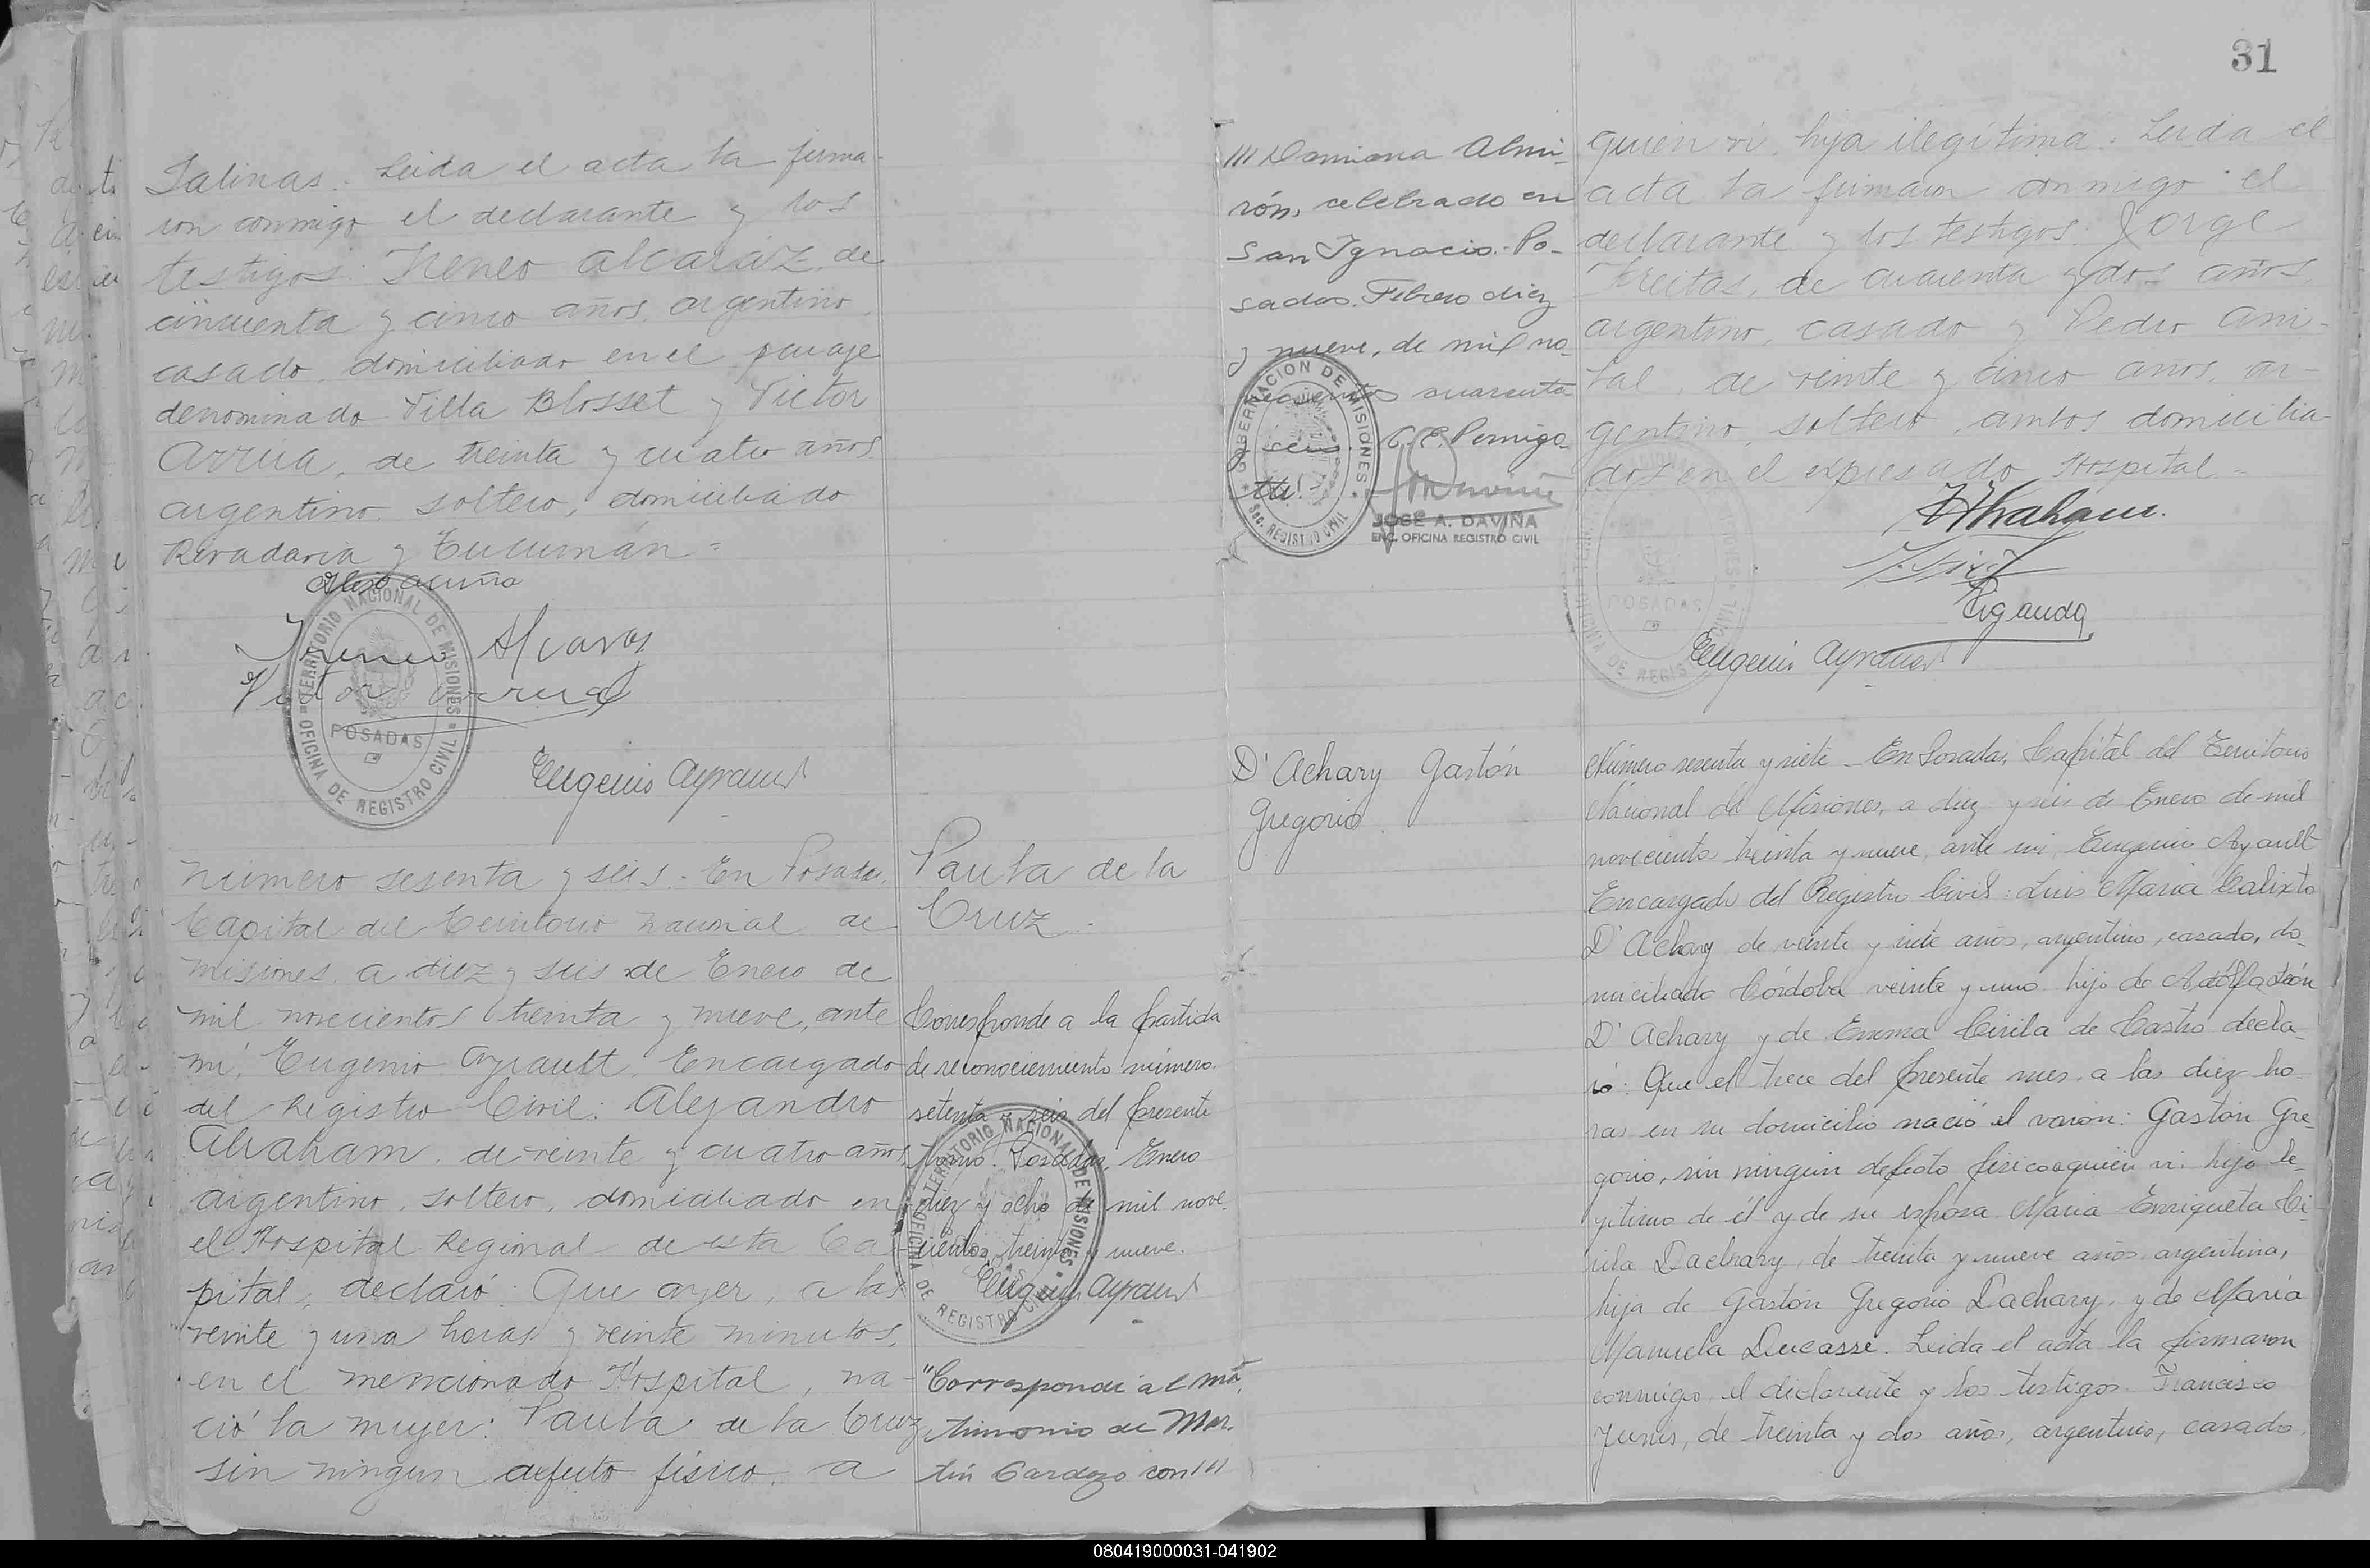 Salinas. Leida el acta la firma-
ron conmigo el declarante y los
testigos: Ireneo Alcaráz, de
cincuenta y cinco años, argentino,
casado, domiciliado en el paraje
denominado Villa Blosset y Victor
Arrua, de treinta y cuatro años,
argentino, soltero, domiciliado
Rivadavia y Tucumán =
Ireneo Alcaraz
Victor Arrua
TERRITORIO NACIONAL DE MISIONES
POSADAS
OFICINA DE REGISTRO CIVIL
Eugenio Ayrault
Número sesenta y seis. En Posadas,
Capital del Territorio Nacional de
Misiones, a diez y seis de Enero de
mil novecientos treinta y nueve, ante
mí, Eugenio Ayrault, Encargado
del Registro Civil: Alejandro
Abraham, de veinte y cuatro años,
argentino, soltero, domiciliado en
el Hospital Regional de esta Ca-
pital, declaró: Que ayer, a las
veinte y una horas y veinte minutos,
en el mencionado Hospital, na-
ció la mujer: Paula de la Cruz,
sin ningun defecto físico, a
Paula de la
Cruz
Corresponde a la partida
de reconocimiento número
setenta y seis del presente
tomo. Posadas, Enero
diez y ocho de mil nove-
cientos treinta y nueve.
Eugenio Ayrault
TERRITORIO NACIONAL DE MISIONES
OFICINA DE REGISTRO CIVIL
"Corresponde al ma-
trimonio de Mar-
tín Cardozo con ///
31
/// Damiana Almi-
rón, celebrado en
San Ignacio. Po-
sadas. Febrero diez
y nueve, de mil no-
vecientos cuarenta
y seis.
GOBERNACION DE MISIONES
SEC. REGISTRO CIVIL
JOSÉ A. DAVIÑA
ENC. OFICINA REGISTRO CIVIL
quien vi, hija ilegítima. Leida el
acta la firmaron conmigo el
declarante y los testigos: Jorge
Freitas, de cuarenta y dos años,
argentino, casado y Pedro Ani-
bal, de veinte y cinco años, ar-
gentino, soltero, ambos domicilia-
dos en el expresado Hospital =
POSADAS
Eugenio Ayrault
D'Achary Gastón
Gregorio
Número sesenta y siete. En Posadas, Capital del Territorio
Nacional de Misiones, a diez y seis de Enero de mil
novecientos treinta y nueve, ante mi, Eugenio Ayrault
Encargado del Registro Civil: Luis Maria Calixto
D'Achary de veinte y siete años, argentino, casado, do-
miciliado Córdoba veinte y uno hijo de Adolfo León
D'Achary y de Emma Cirila de Castro decla-
ró: Que el trece del presente mes a las diez ho-
ras en su domicilio nació el varón: Gastón Gre-
gorio, sin ningun defecto físico a quien vi hijo le-
gitimo de él y de su esposa Maria Enriqueta Ci-
rila Dachary, de treinta y nueve años argentina,
hija de Gastón Gregorio Dachary, y de Maria
Manuela Ducasse. Leida el acta la firmaron
conmigo el declarante y los testigos Francisco
Yunis, de treinta y dos años, argentino, casado,
080419000031-041902